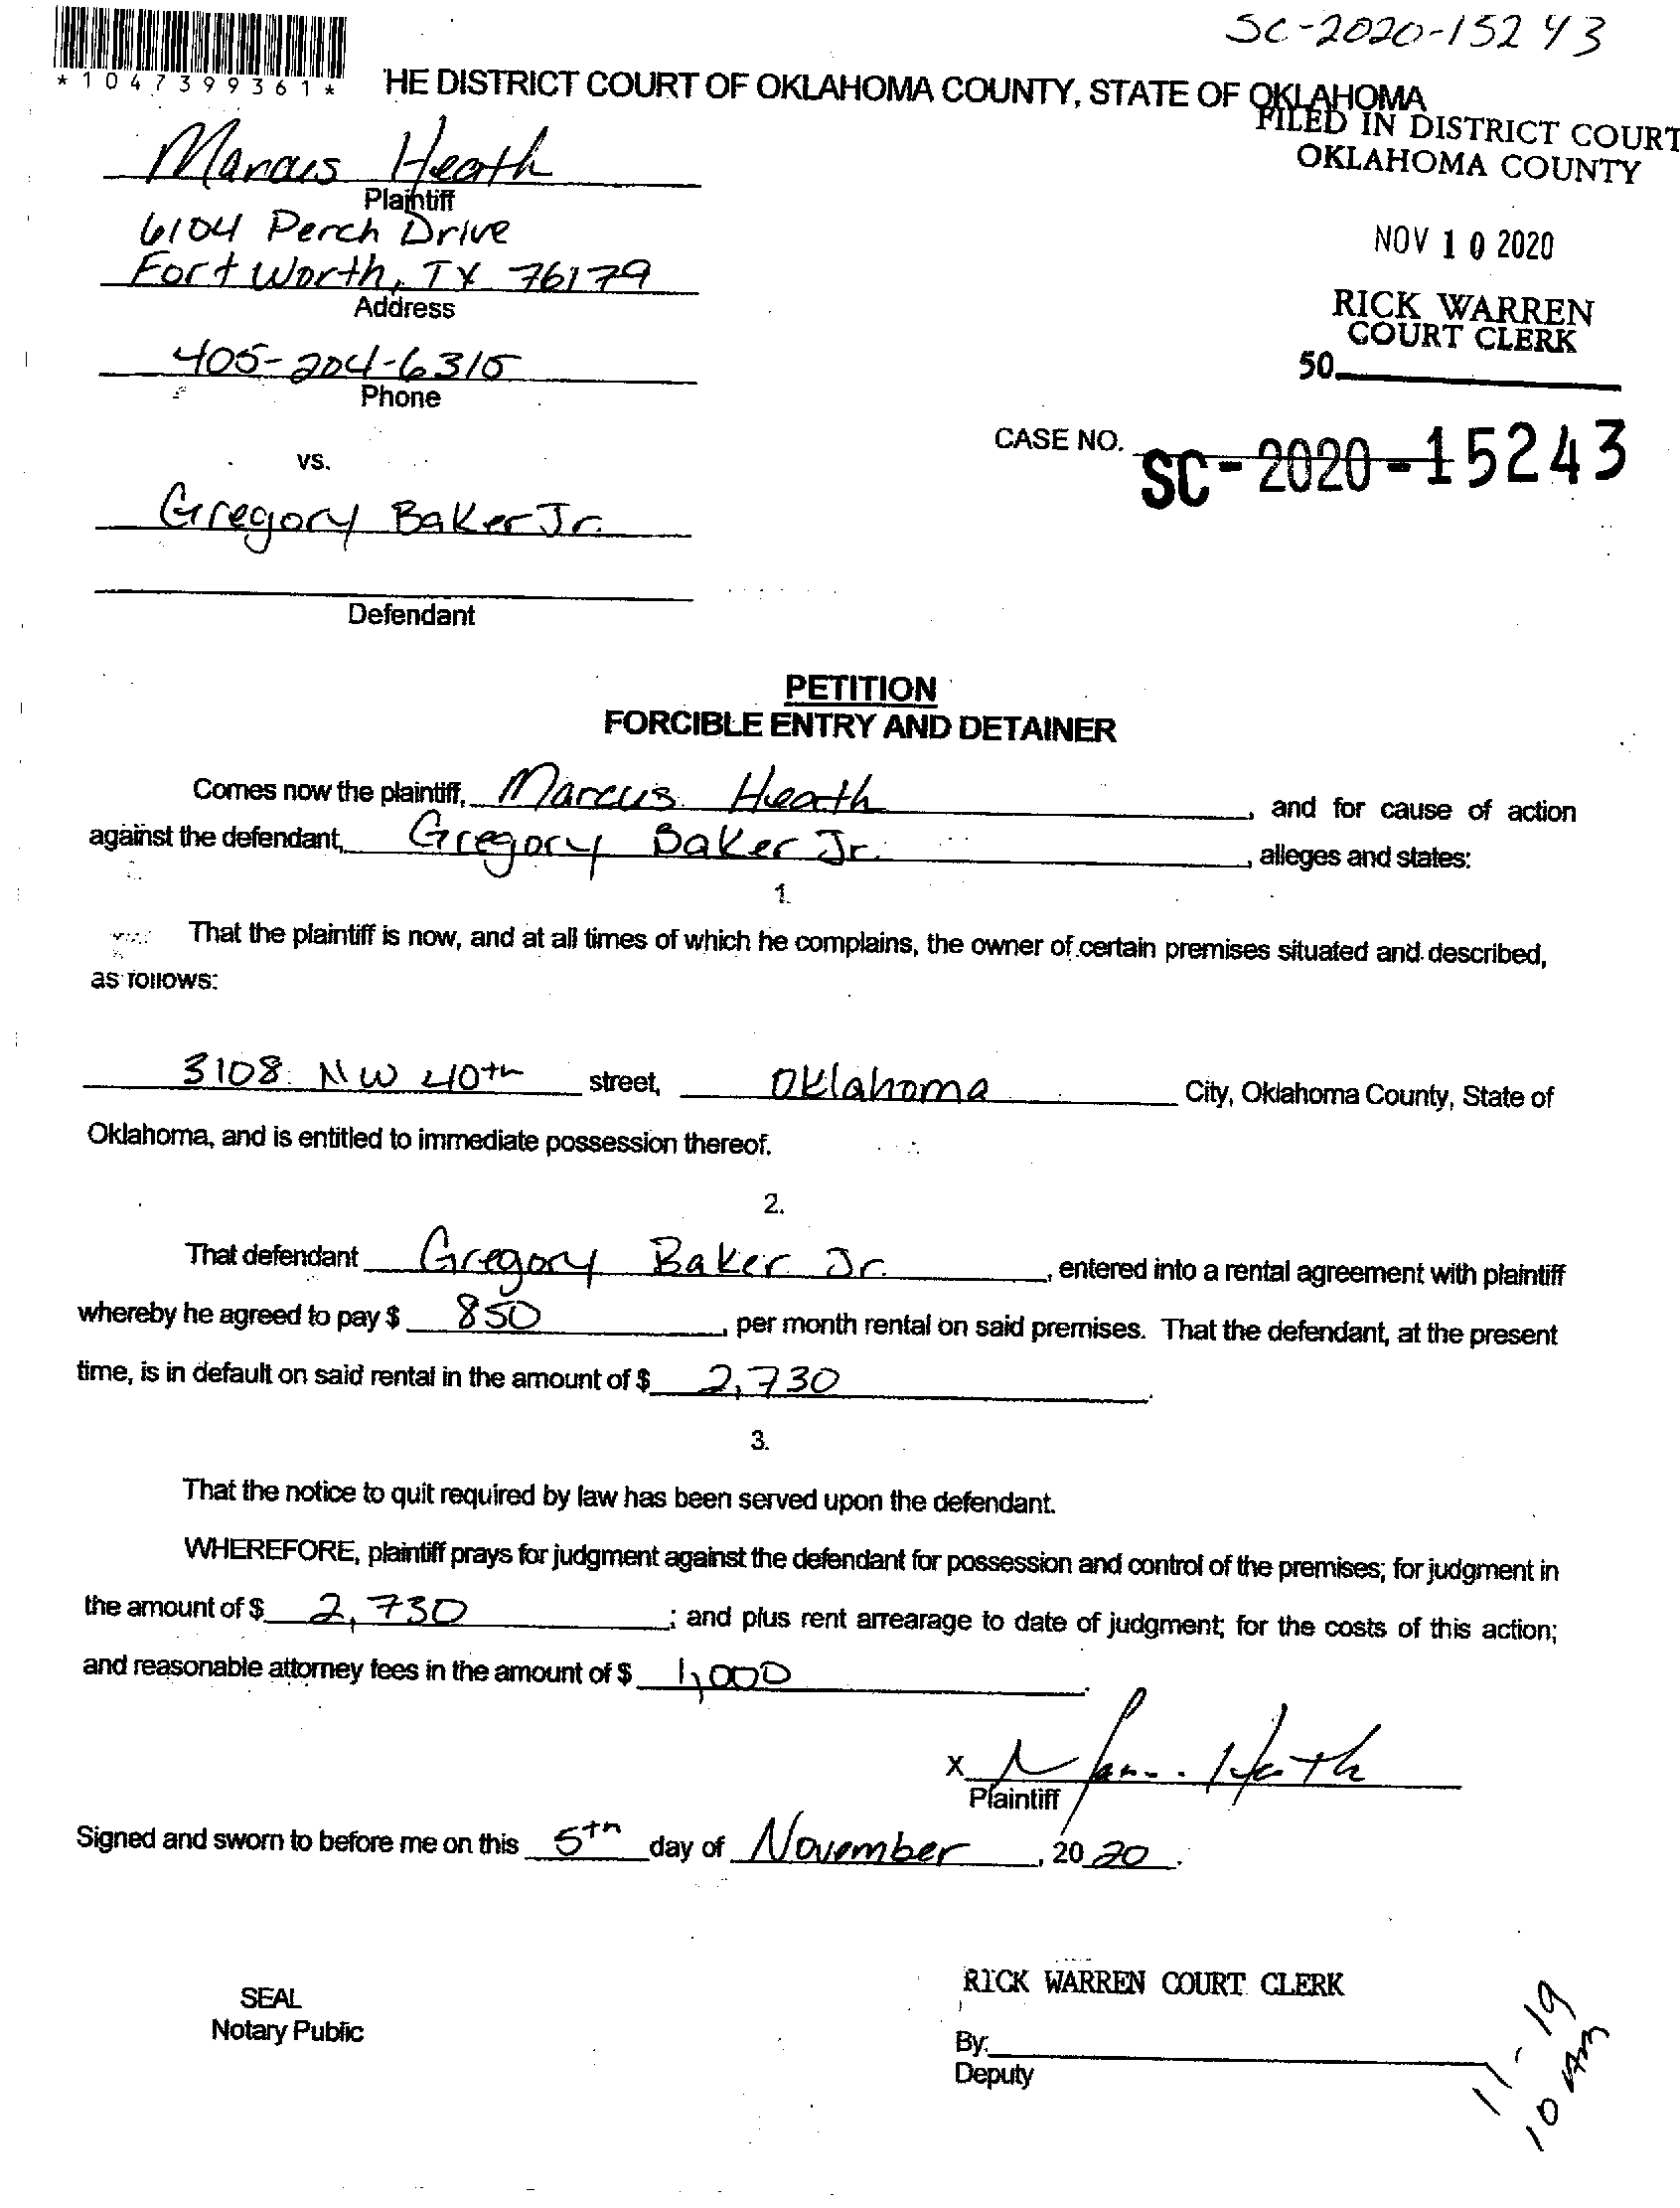 SC-2020-15243
*1047399361*
HE DISTRICT COURT OF OKLAHOMA COUNTY, STATE OF OKLAHOMA
FILED IN DISTRICT COURT
OKLAHOMA COUNTY
Marcus Heath
Plaintiff
6104 Perch Drive
NOV 10 2020
Fort Worth, TX 76179
Address
RICK WARREN
COURT CLERK
405-204-6315
50
Phone
CASE NO. SC-2020-15243
vs.
Gregory Baker Jr.
Defendant
PETITION
FORCIBLE ENTRY AND DETAINER
Comes now the plaintiff, Marcus Heath, and for cause of action
against the defendant, Gregory Baker Jr., alleges and states:
1.
That the plaintiff is now, and at all times of which he complains, the owner of certain premises situated and described,
as follows:
3108 NW 40th street, Oklahoma City, Oklahoma County, State of
Oklahoma, and is entitled to immediate possession thereof.
2.
That defendant Gregory Baker Jr., entered into a rental agreement with plaintiff
whereby he agreed to pay $ 850, per month rental on said premises. That the defendant, at the present
time, is in default on said rental in the amount of $ 2,730.
3.
That the notice to quit required by law has been served upon the defendant.
WHEREFORE, plaintiff prays for judgment against the defendant for possession and control of the premises; for judgment in
the amount of $ 2,730; and plus rent arrearage to date of judgment; for the costs of this action;
and reasonable attorney fees in the amount of $ 1,000.
X Marcus Heath
Plaintiff
Signed and sworn to before me on this 5th day of November, 2020.
RICK WARREN COURT CLERK
SEAL
Notary Public
By:
Deputy
11-19
10 AM